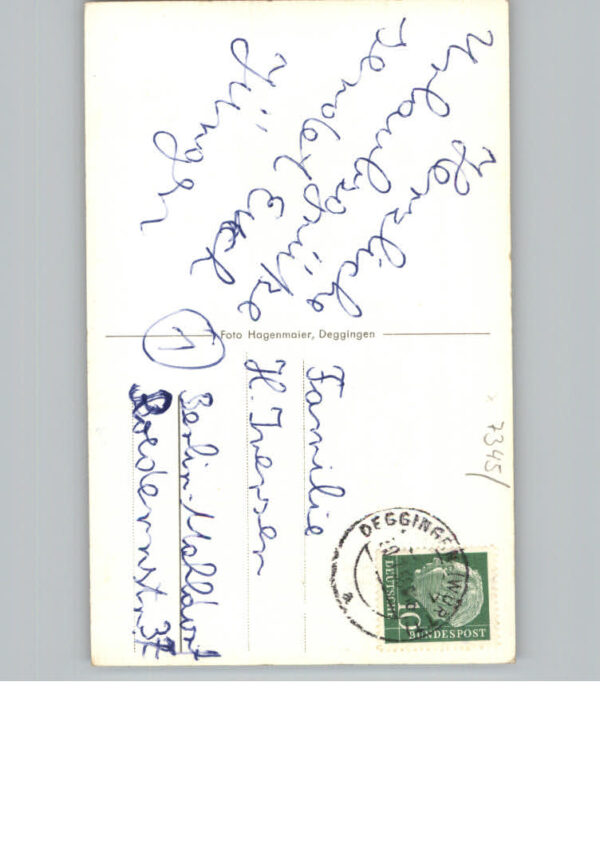 Herzliche
Urlaubsgrüße
sendet Euch
Jürgen
Foto Hagenmaier, Deggingen
1
Familie
H. Iversen
Berlin-Mahlsdorf
Roedernstr. 37
7345/
DEGGINGEN
a
10
DEUTSCHE
BUNDESPOST